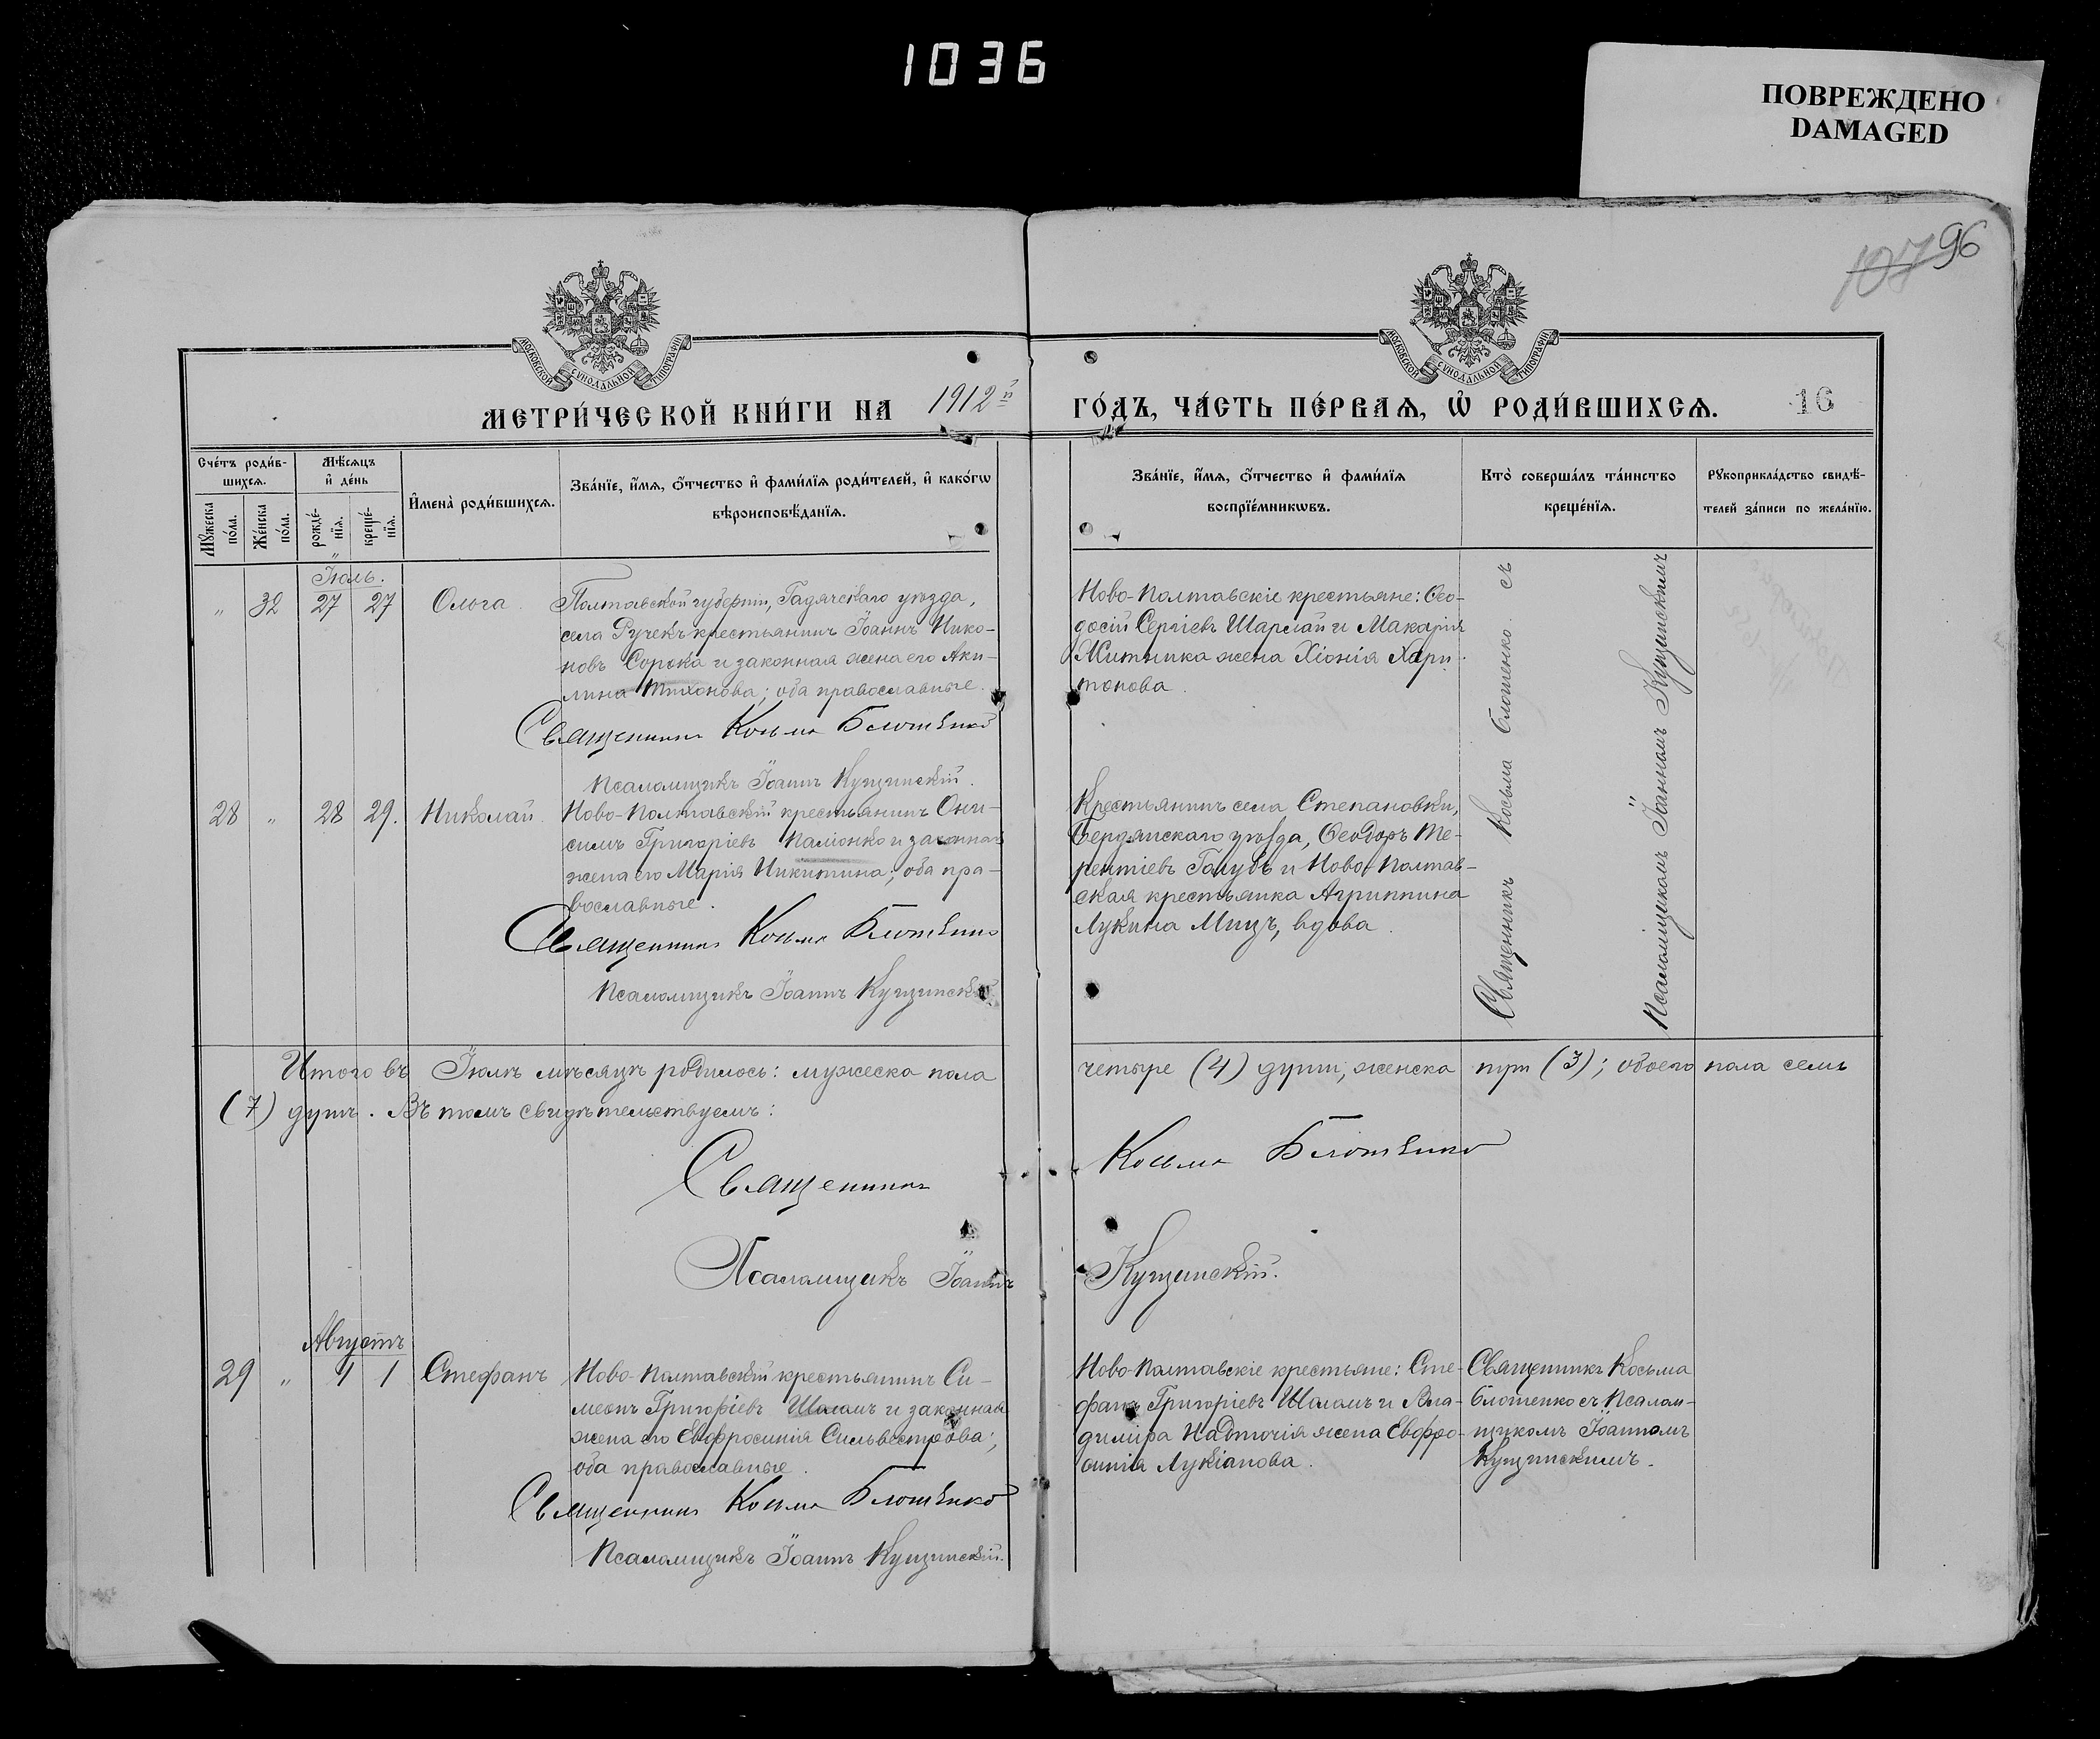 1036
ПОВРЕЖДЕНО
DAMAGED
107 96
МОСКОВСКОЙ СѴНОДАЛЬНОЙ ТИПОГРАФІИ
МОСКОВСКОЙ СѴНОДАЛЬНОЙ ТИПОГРАФІИ
МЕТРИ́ЧЕСКОЙ КНИ́ГИ НА 1912й ГО́ДЪ, ЧА́СТЬ ПЕ́РВАѦ, Ѡ҆ РОДИ́ВШИХСѦ. 16
Сче́тъ роди́в-
шихсѧ.
Мꙋжеска по́ла.
Же́нска по́ла.
Мѣ́сѧцъ
и҆ де́нь
рожде́-
нїѧ.
креще́-
нїѧ.
И҆мена̀ роди́вшихсѧ.
Зва́нїе, и҆́мѧ, ѻ҆́тчество и҆ фами́лїѧ роди́телей, и҆ како́гѡ
вѣроисповѣ́данїѧ.
Зва́нїе, и҆́мѧ, ѻ҆́тчество и҆ фами́лїѧ
воспрїе́мникѡвъ.
Кто̀ соверша́лъ та́инство
креще́нїѧ.
Рꙋкоприкла́дство свидѣ́-
телей за́писи по жела́нїю.
Іюль.
" 32 27 27 Ольга.
Полтавской губерніи, Гадячскаго уѣзда,
села Ручекъ крестьянинъ Іоаннъ Нико-
новъ Сорока и законная жена его Аки-
лина Тихонова; оба православные.
Священникъ Косьма Блошенко
Псаломщикъ Іоаннъ Кущинскій.
Ново-Полтавскіе крестьяне: Ѳео-
досій Сергіевъ Шарлай и Макарія
Житника жена Хіонія Хари-
тонова.
28 " 28 29. Николай
Ново-Полтавскій крестьянинъ Они-
симъ Григоріевъ Паліонко и законная
жена его Марія Никитина; оба пра-
вославные.
Священникъ Косьма Блошенко
Псаломщикъ Іоаннъ Кущинскій.
Крестьянинъ села Степановки,
Бердянскаго уѣзда, Ѳеодоръ Те-
рентіевъ Голубъ и Ново-Полтав-
ская крестьянка Агриппина
Лукина Мицъ, вдова.
Священникъ Косьма Блошенко съ
Псаломщикомъ Іоанномъ Кущинскимъ
Итого въ Іюлѣ мѣсяцѣ родилось: мужеска пола четыре (4) души, женска три (3); обоего пола семь
(7) душъ. Въ томъ свидѣтельствуемъ:
Священникъ Косьма Блошенко
Псаломщикъ Іоаннъ Кущинскій.
Августъ
29 " 1 1 Стефанъ
Ново-Полтавскій крестьянинъ Си-
меонъ Григоріевъ Шаламъ и законная
жена его Евфросинія Сильвестрова;
оба православные.
Священникъ Косьма Блошенко
Псаломщикъ Іоаннъ Кущинскій.
Ново-Полтавскіе крестьяне: Сте-
фанъ Григоріевъ Шаламъ и Вла-
диміра Надточія жена Евфро-
синія Лукіанова.
Священникъ Косьма
Блошенко съ Псалом-
щикомъ Іоанномъ
Кущинскимъ.